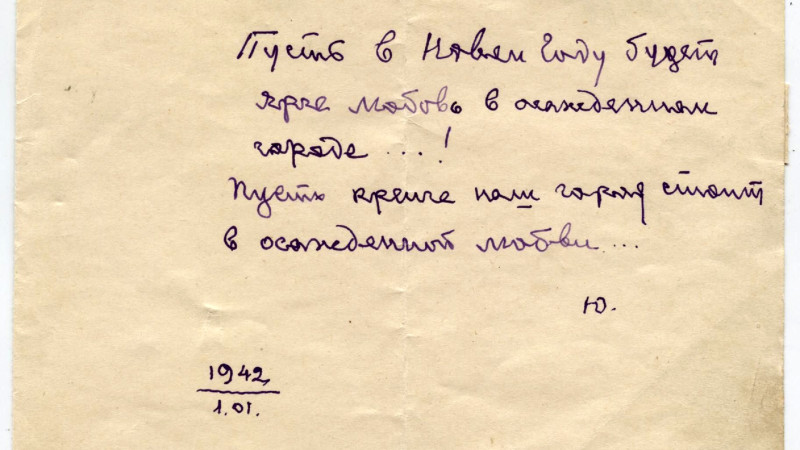 Пусть в Новом Году будет
ярче любовь в осажденном
городе ...!
Пусть крепче наш город стоит
в осажденной любви ...
Ю.
1942
1.01.